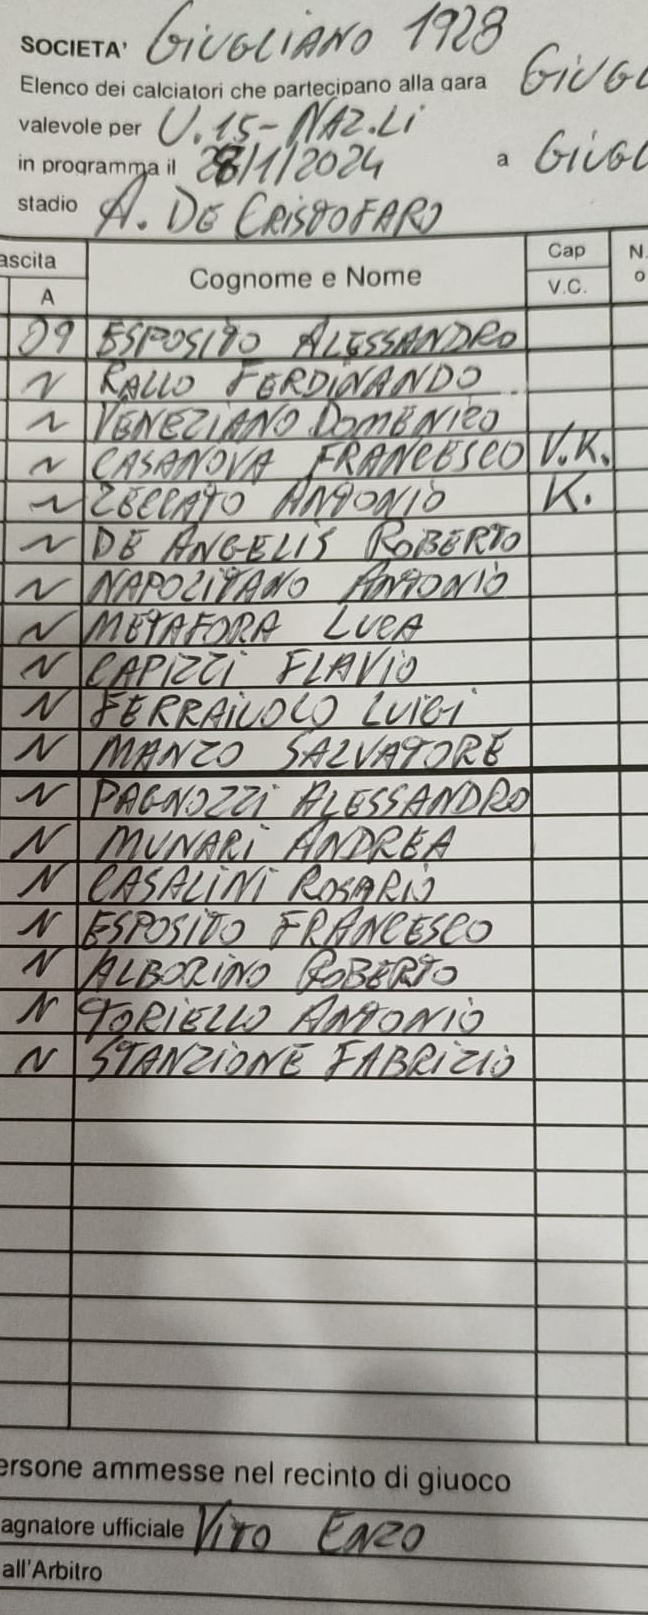 SOCIETA' GIUGLIANO 1928
Elenco dei calciatori che partecipano alla gara GIUGL
valevole per U.15-NAZ.LI
in programma il 28/1/2024 a GIUGL
stadio A. DE CRISTOFARO
ascita Cognome e Nome Cap N.
A V.C. o
09 ESPOSITO ALESSANDRO
N RALLO FERDINANDO
N VENEZIANO DOMENICO
N CASANOVA FRANCESCO V.K.
N ZECCATO ANTONIO K.
N DE ANGELIS ROBERTO
N NAPOLITANO ANTONIO
N METAFORA LUCA
N CAPIZZI FLAVIO
N FERRAIUOLO LUIGI
N MANZO SALVATORE
N PAGNOZZI ALESSANDRO
N MUNARI ANDREA
N CASALINI ROSARIO
N ESPOSITO FRANCESCO
N ALBORINO ROBERTO
N TORIELLO ANTONIO
N STANZIONE FABRIZIO
ersone ammesse nel recinto di giuoco
agnatore ufficiale VITO ENZO
all'Arbitro